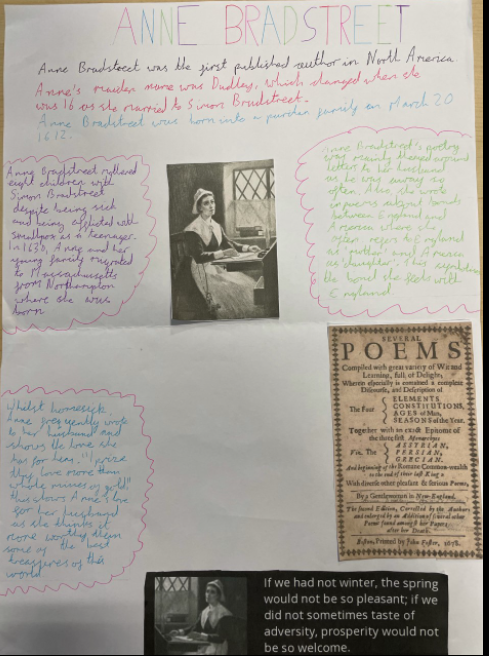 ANNE BRADSTREET
Anne Bradstreet was the first published author in North America.
Anne's maiden name was Dudley, which changed when she
was 16 as she married to Simon Bradstreet.
Anne Bradstreet was born into a puritan family on March 20
1612.
Anne Bradstreet
eight children with
Simon Bradstreet
despite being sick
and being afflicted with
smallpox as a teenager.
In 1630, Anne and her
young family migrated
to Massachusetts
from Northampton
where she was
born
Anne Bradstreet's poetry
was mainly themed around
letters to her husband
as he was away so
often. Also, she wrote
poems about bonds
between England and
America where she
often refers to England
as 'mother' and America
as 'daughter'. This
the bond she feels with
England
SEVERAL
POEMS
Compiled with great variety of Wit and
Learning, full of Delight;
Wherein especially is contained a compleat
Discourse, and Description of
The Four
ELEMENTS
CONSTITUTIONS,
AGES of Man,
SEASONS of the Year.
Together with an exact Epitome of
the three first Monarchyes
Viz. The
ASSYRIAN,
PERSIAN,
GRECIAN.
And beginning of the Romane Common-wealth
to the end of their last King:
With diverse other pleasant & serious Poems,
By a Gentlewoman in New-England.
The second Edition, Corrected by the Author,
and enlarged by an Addition of several other
Poems found amongst her Papers
after her Death.
Boston, Printed by John Foster, 1678.
Whilst homesick
Anne frequently wrote
to her husband and
shows the love she
has for him. "I prize
thy love more than
whole mines of gold"
this shows Anne's love
for her husband
as she thinks it
more worthy then
some of the best
treasures of this
world
If we had not winter, the spring
would not be so pleasant; if we
did not sometimes taste of
adversity, prosperity would not
be so welcome.